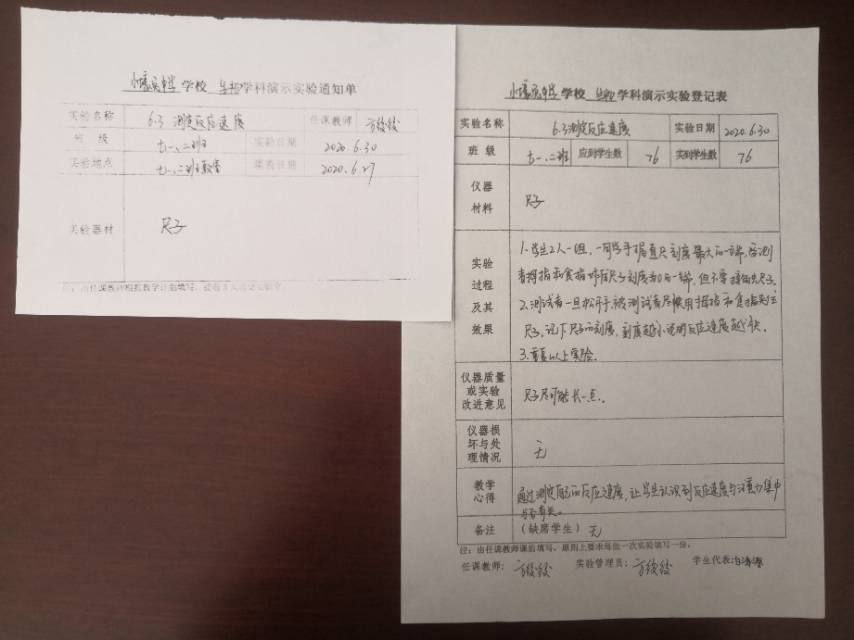 学校 生物学科演示实验通知单
实验名称 6.3 测定反应速度 任课教师
班 级 七一、二班 实验日期 2020.6.30
实验地点 七一、二班教室 日期 2020.6.27
实验器材 尺子
注：由任课教师根据教学计划填写，
学校 生物学科演示实验登记表
实验名称 6.3测定反应速度 实验日期 2020.6.30
班 级 七一、二班 应到学生数 76 实到学生数 76
仪器
材料
尺子
实验
过程
及其
效果
1.学生2人一组，一同学手握直尺刻度最大的一端，被测
者拇指和食指对准尺子刻度为0的一端，但不要接触尺子。
2.测试者一旦松开手，被测试者尽快用手拇指和食指夹住
尺子，记下尺子的刻度，刻度越小说明反应速度越快。
3.重复以上实验。
仪器质量
或实验
改进意见
尺子尽可能长一点。
仪器损
坏与处
理情况
无
教学
心得
通过测定自己的反应速度，让学生认识到反应速度与注意力集中
与否有关。
备注 （缺席学生） 无
注：由任课教师课后填写，原则上要求每做一次实验填写一份。
任课教师： 实验管理员： 学生代表：